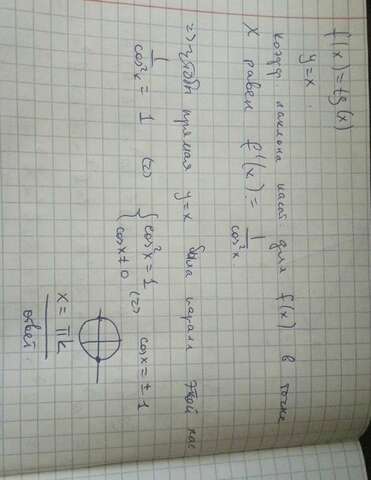 f(x) = tg(x)
y = x.
коэфф наклона касат. для f(x) в точке
x равен f'(x) = 1/cos²x.
=> чтобы прямая y=x была паралл этой кас
1/cos²x = 1 (=) { cos²x = 1 cosx ≠ 0 (=) cosx = ±1
x = πk
ответ.